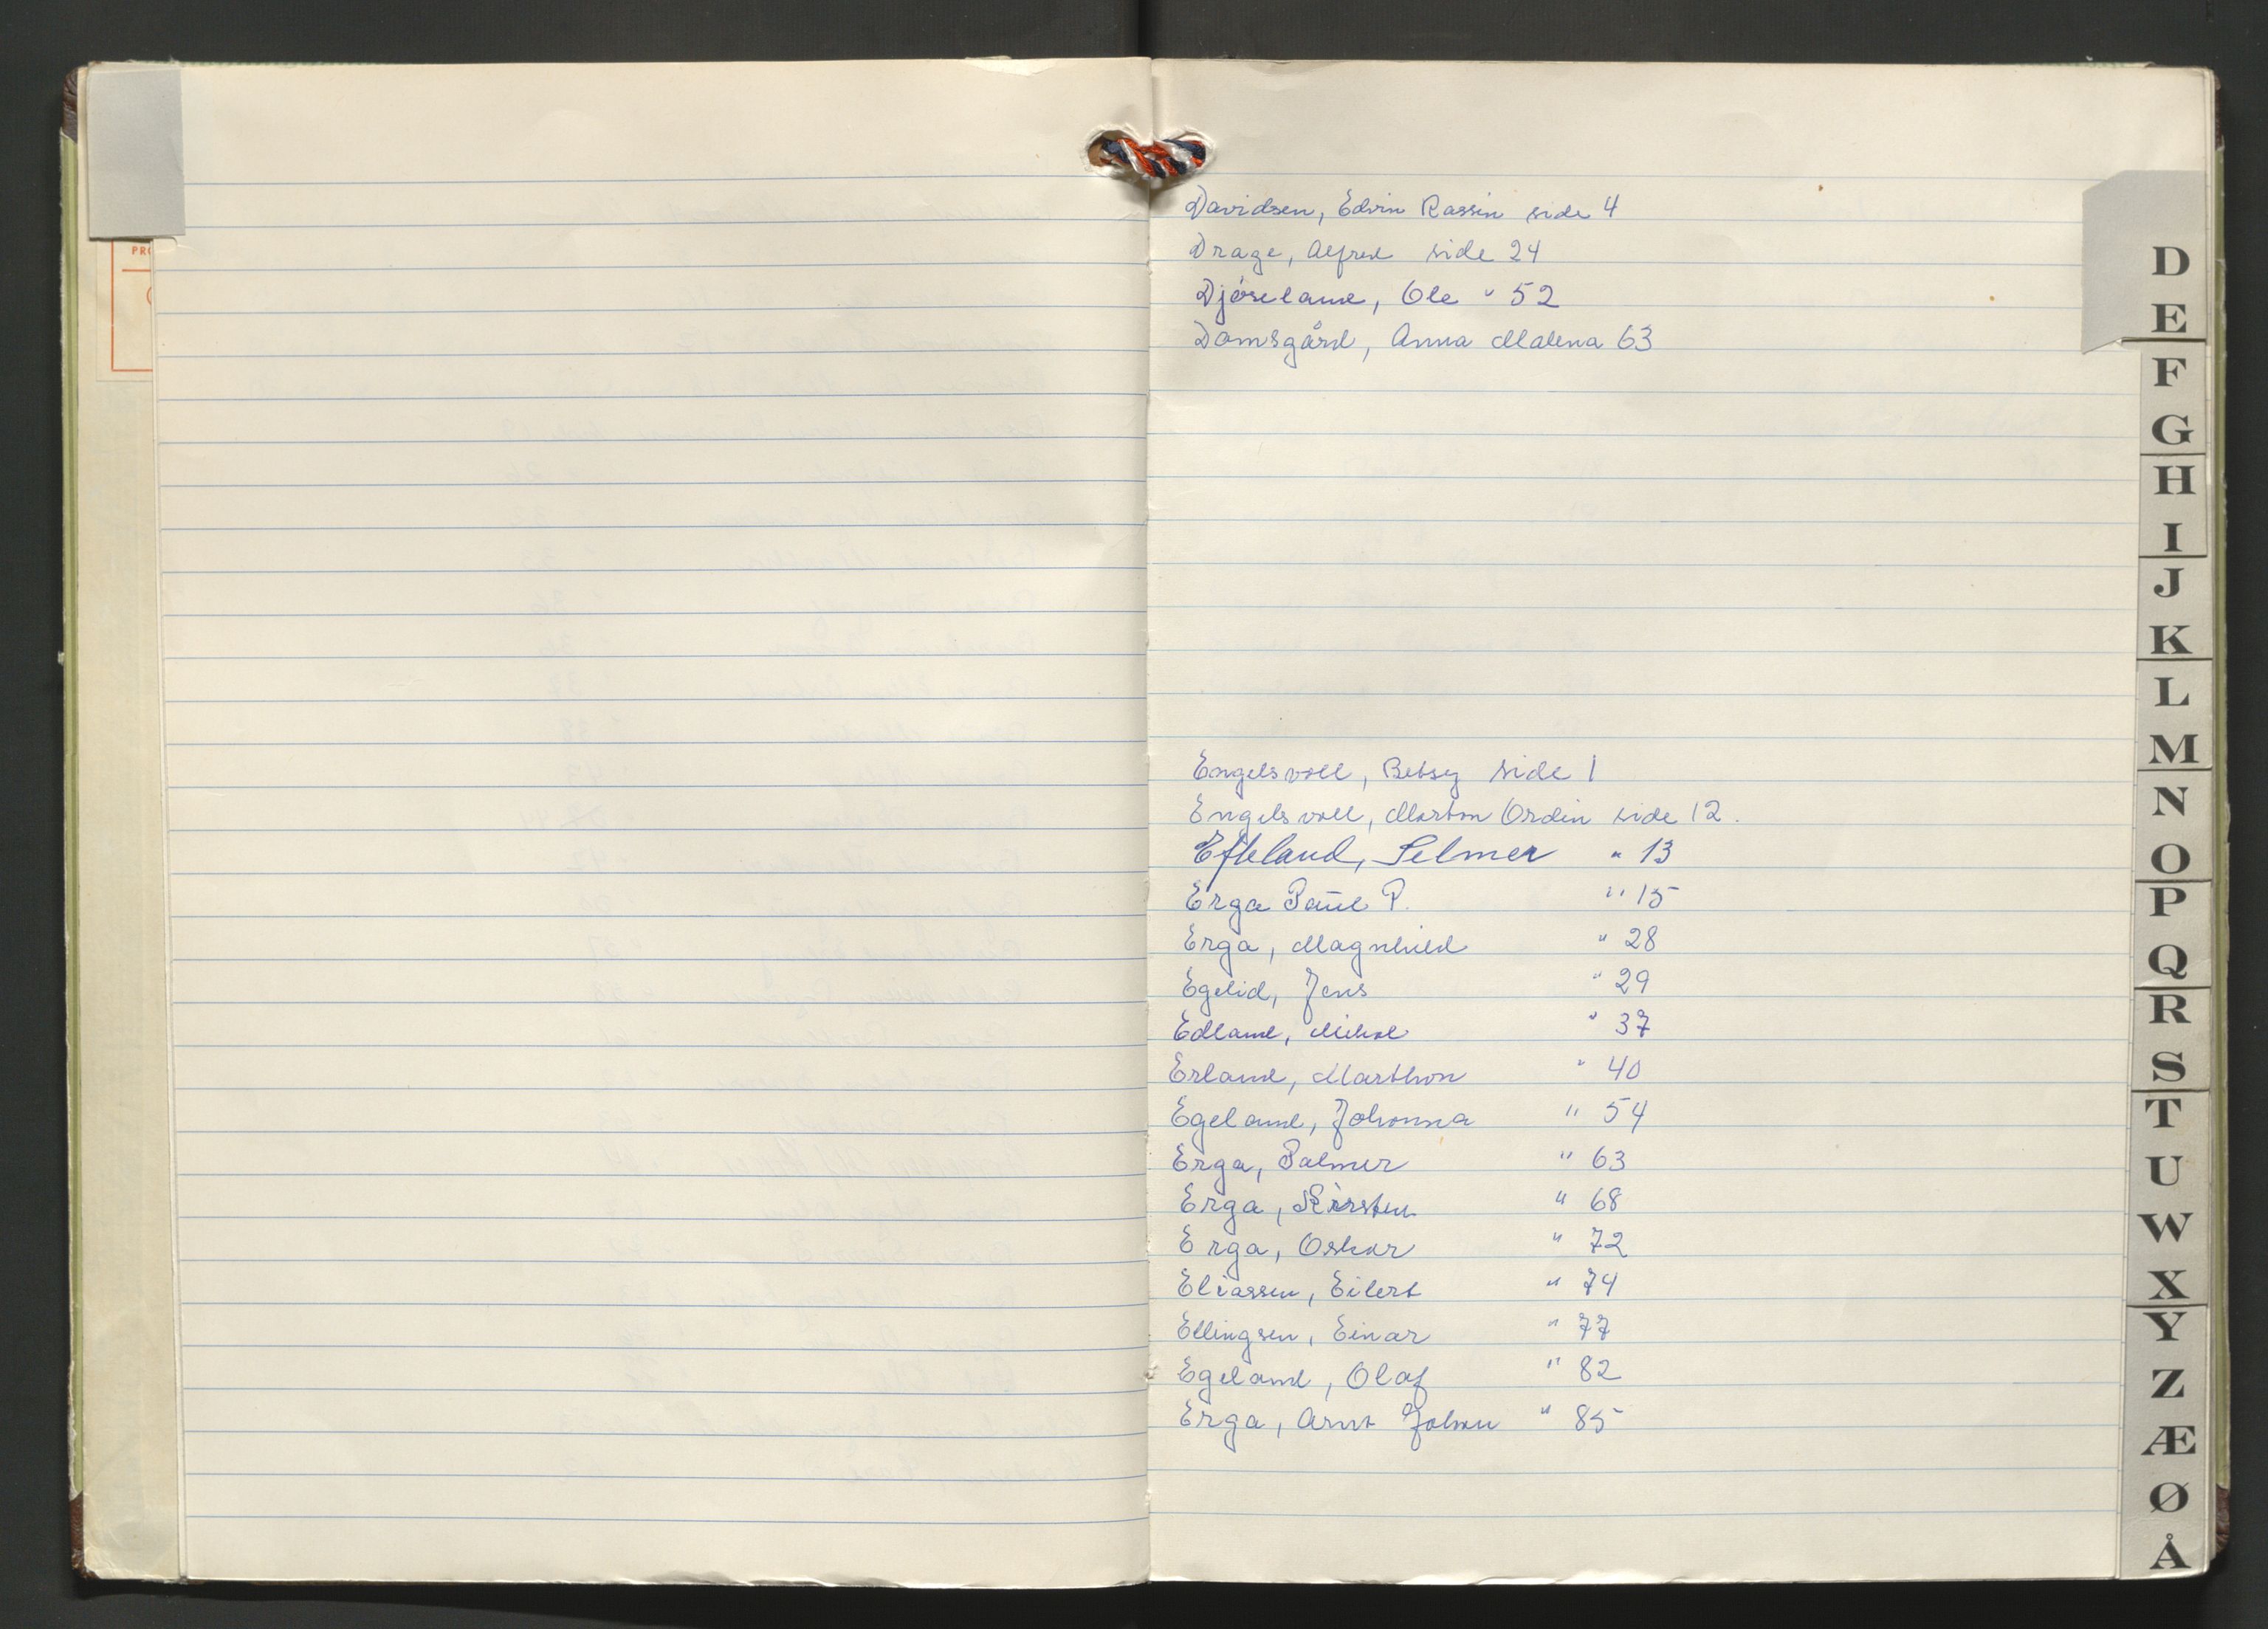 PR
Davidsen, Edvin Rassin side 4
Drage, Alfred side 24
Djöseland, Ole " 52
Domsgård, Anna Malena 63
Engelsvoll, Betsy side 1
Engelsvoll, Morton Ordin side 12.
Efteland, Selmer " 13
Erga Paul P. " 15
Erga, Magnhild " 28
Egelid, Jens " 29
Edland, Mikal " 37
Erland, Marthon " 40
Egeland, Johanna " 54
Erga, Palmer " 63
Erga, Kirsten " 68
Erga, Oskar " 72
Eliassen, Eilert " 74
Ellingsen, Einar " 77
Egeland, Olaf " 82
Erga, Arnt Johan " 85
D
E
F
G
H
I
J
K
L
M
N
O
P
Q
R
S
T
U
W
X
Y
Z
Æ
Ø
Å